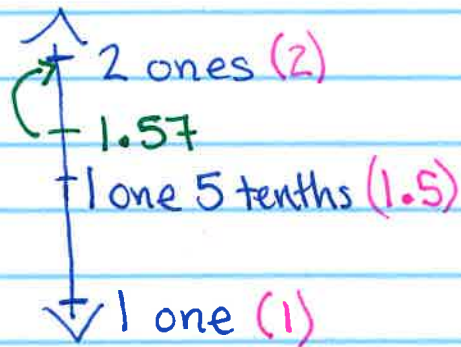 2 ones (2)
1.57
1 one 5 tenths (1.5)
1 one (1)